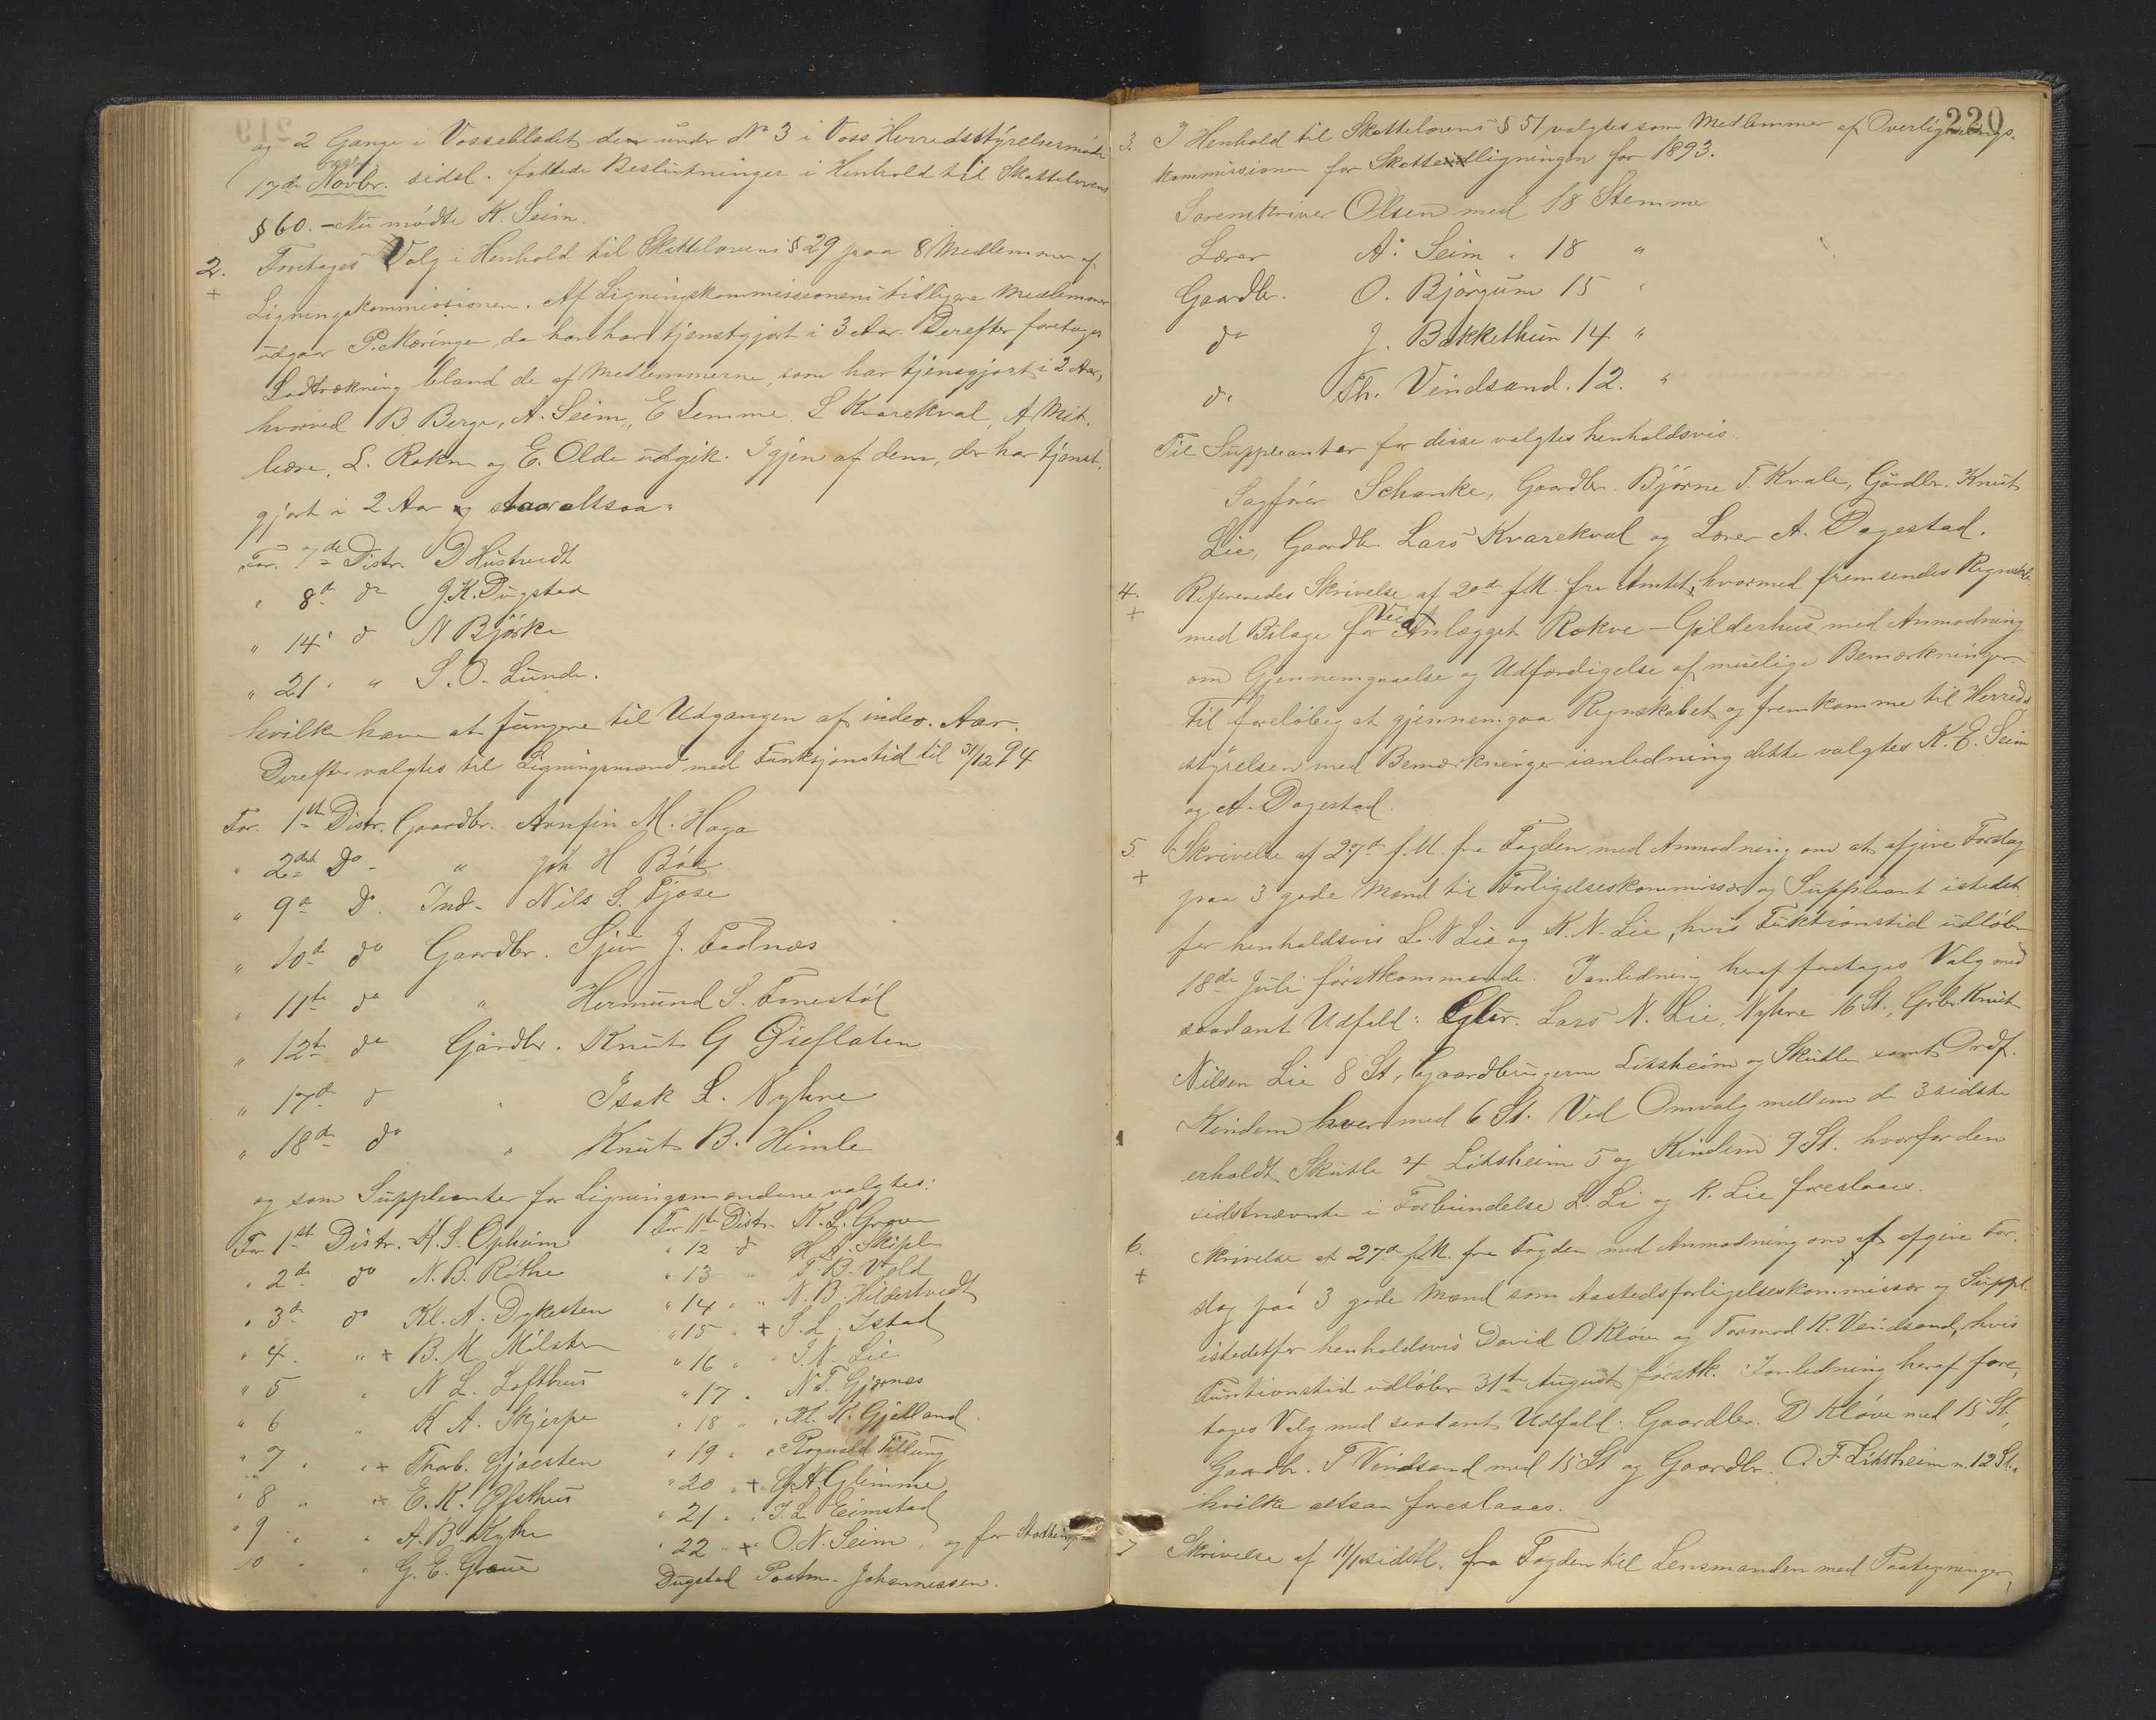 og 2 Gange i Vossebladet den under No 3 i Voss Herredsstyrelsesmøde
17de Novbr. sidstl. fattede Beslutninger i Henhold til Skattelovens
§ 60. - Nu mødte K. Seim.
2. Foretages Valg i Henhold til Skattelovens § 29 paa 8 Medlemmer af
+
Ligningskommissionen. Af Ligningskommissionens tidligere Medlemmer
udgaar P. Mæringen, da han har tjenstgjort i 3 Aar. Derefter foretages
Lodtrækning bland de af Medlemmerne, som har tjensgjort i 2 Aar,
hvorved B Berge, A. Seim, E Lemme L Kvarekval, A Mit-
læn, L. Rokne og E. Olde udgik. Igjen af dem, der har tjenst-
gjort i 2 Aar og staar altsaa:
For 7de Distr. D Hustvedt
" 8de do J. K. Dugstad
" 14 d N Bjørke
" 21 " " S. O. Lunde.
hvilke have at fungere til Udgangen af indev. Aar.
Derefter valgtes til Ligningsmænd med Funksjonstid til 31/12 94
For 1ste Distr. Gaardbr. Arnfin M. Haga
" 2det Do - " Joh H Bøe
" 9de D. Ind- Nils S. Fjose
" 10de do Gaardbr. Sjur J. Fadnæs
" 11te do " Hermund S. Fonestøl
" 12te do Gårdbr. Knut G Gjeflaten
" 17de d " Isak L. Nyhre
" 18de do " Knut B. Himle
og som Suppleanter for Ligningsmændene valgtes:
For 1ste Distr. A. S. Opheim
" 2de do N. B. Røthe
" 3de do Kl. A. Dykesten
" 4. " + B. M. Milsten
" 5 " N L. Lofthus
" 6 " K A. Skjerpe
" 7 " + Thorb. Gjoesten
" 8 " + E. K. Øfsthus
" 9 " " A. B. Kyhe
10 " " G. E. Graue
For 11te Distr. K. L. Grove
" 12 d H. A. Skiple
" 13 " T. B. Vold
" 14 " " N. B. Hildestvedt
" 15 " + S. L. Istad
" 16 " " I. N. Lie
" 17 " N T. Gjernes
" 18 " " Kl. K. Gjelland
" 19 " " Rognald Tillung
" 20 " + A. N Glimme
" 21 " " I. L. Reimstad
" 22 " + O. N. Seim, og for
Dugstad Postm. Johannessen.
220
3. I Henhold til Skattelovens § 51 valgtes som Medlemmer af Overlignings-
kommissionen for Skatteligningen for 1893.
Sorenskriver Olsen med 18 Stemmer
Lærer A. Seim " 18 "
Gaardbr. O. Bjørgum 15 "
do J. Bakkethun 14 "
do Th. Vindsand. 12. "
Til Suppleanter for disse valgtes henholdsvis
Sagfører Schanke, Gaardbr. Bjørne T. Kvale, Gårdbr. Knut
Lie, Gaardbr. Lars Kvarekval og Lærer A. Dagestad.
4. Refereredes Skrivelse af 20de f. M. fra Amtet, hvormed fremsendes Regnskab
+
med Bilage for Veianlægget Rokve - Gjilderhus med Anmodning
om Gjennemgaaelse og Udfærdigelse af muelige Bemærkninger.
Til foreløbig at gjennemgaa Regnskabet og fremkomme til Herreds
styrelsen med Bemærkninger ianledning dette valgtes K. E. Seim
og A. Dagestad.
5. Skrivelse af 27de f. M. fra Fogden med Anmodning om at afgive Forslag
+
paa 3 gode Mænd til Forligelseskommissær og Suppleant istedet
for henholdsvis L. N Lie og K. N. Lie, hvis Fuktionstid udløber
18de Juli førstkommende. Ianledning heraf foretages Valg med
saadant Udfald: Lars N. Lie, Nyhre 16 St., Grbr. Knut
Nilsen Lie 8 St, Gaardbrugerne Litsheim og Skutle samt Ordf.
Kindem hver med 6 St. Ved Omvalg mellem de 3 sidste
erholdt Skutle 4 Litsheim 5 og Kindem 9 St. hvorfor den
sidstnævnte i Forbindelse L. Li og K. Lie foreslaaes.
6. Skrivelse at 27de f. M. fra Fogden med Anmodning om at afgive For-
+
slag paa 3 gode Mænd som Aastedsforligelseskommissær og Suppl.
istedetfor henholdsvis David O. Kløve og Tormod K. Vendsand, hvis
Funtionstid udløber 31te August førstk. Ianledning heraf fore-
tages Valg med saadant Udfald: Gaardbr. D Kløve med 15 St,
Gaardbr. T Vindsand med 15 St og Gaardbr. O. F. Litsheim m. 12 St.,
hvilke altsaa foreslaaes.
7 Skrivelse af 11/1 sidstl. fra Fogden til Lensmanden med Paategninger,